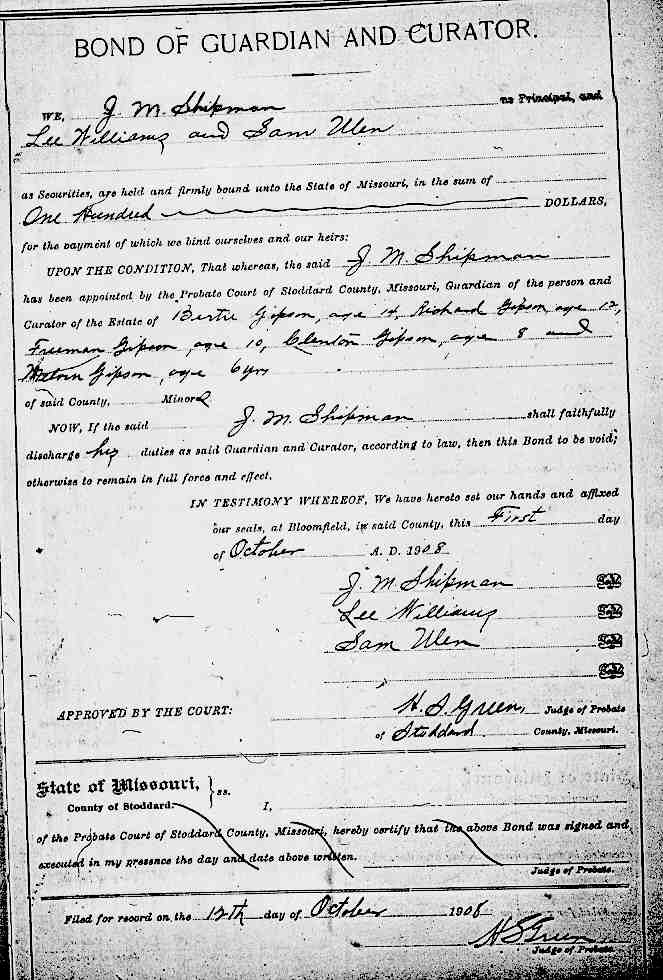 BOND OF GUARDIAN AND CURATOR.
WE, J. M. Shipman as Principal, and
Lee Williams and Sam Ulen
as Securities, are held and firmly bound unto the State of Missouri, in the sum of
One Hundred DOLLARS,
for the payment of which we bind ourselves and our heirs:
UPON THE CONDITION, That whereas, the said J. M. Shipman
has been appointed by the Probate Court of Stoddard County, Missouri, Guardian of the person and
Curator of the Estate of Bertie Gipson, age 14, Richard Gipson, age 12,
Freeman Gipson, age 10, Clenton Gipson, age 8 and
Gipson, age 6 yrs
of said County, Minors
NOW, If the said J. M. Shipman shall faithfully
discharge his duties as said Guardian and Curator, according to law, then this Bond to be void;
otherwise to remain in full force and effect.
IN TESTIMONY WHEREOF, We have hereto set our hands and affixed
our seals, at Bloomfield, in said County, this First day
of October A. D. 1908
J. M. Shipman Seal
Lee Williams Seal
Sam Ulen Seal
Seal
APPROVED BY THE COURT: H. S. Green, Judge of Probate
of Stoddard County, Missouri.
State of Missouri, } ss.
County of Stoddard. I,
of the Probate Court of Stoddard County, Missouri, hereby certify that the above Bond was signed and
executed in my presence the day and date above written.
Judge of Probate.
Filed for record on the 12th day of October 1908
H S Green
Judge of Probate.